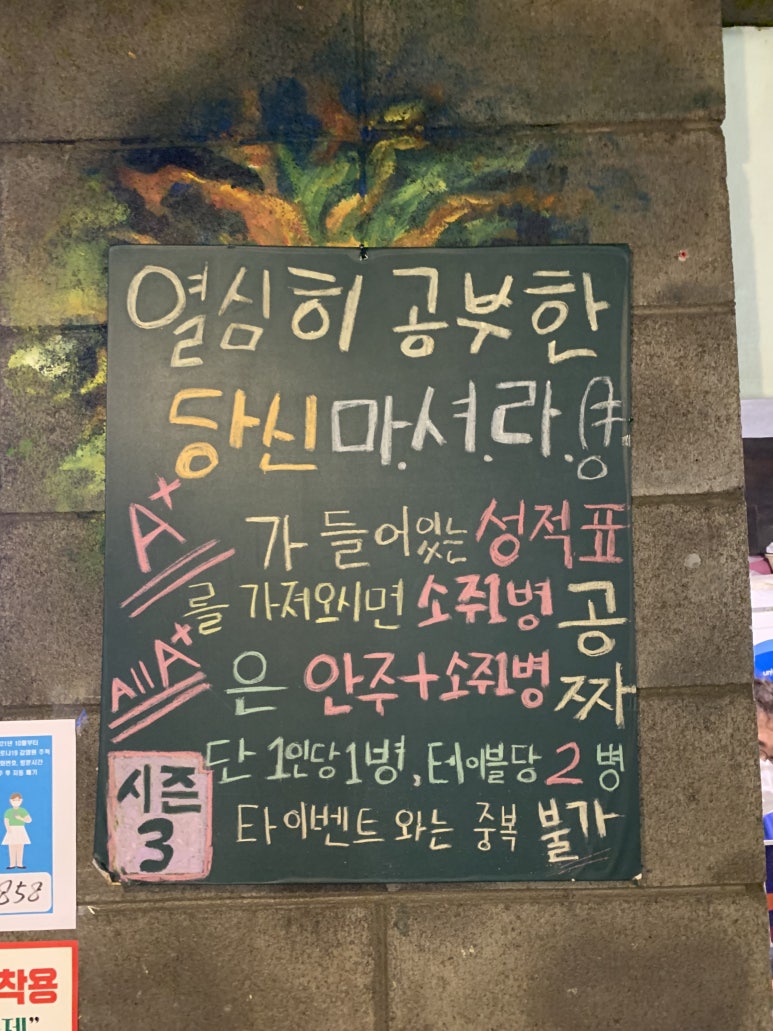 열심히 공부한
당신 마.셔.라.
A+ 가 들어있는 성적표
를 가져오시면 소주1병 공짜
All A+ 은 안주+소주1병
단 1인당1병, 테이블당 2병
타이벤트와는 중복 불가
시즌
3
858
착용